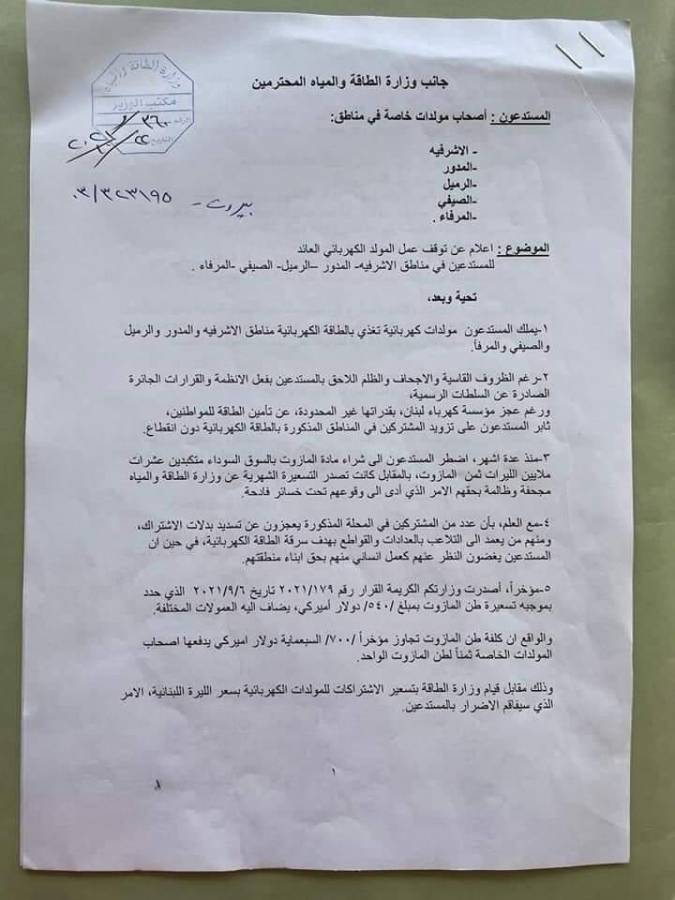 جانب وزارة الطاقة والمياه المحترمين
وزارة الطاقة والمياه
مكتب الوزير
المستدعون : أصحاب مولدات خاصة في مناطق:
- الاشرفيه
-المدور
-الرميل
-الصيفي
-المرفاء .
بيروت - ٠٣/٣٢٣١٩٥
الموضوع : اعلام عن توقف عمل المولد الكهربائي العائد
للمستدعين في مناطق الاشرفيه- المدور –الرميل- الصيفي -المرفاء .
تحية وبعد،
١-يملك المستدعون مولدات كهربائية تغذي بالطاقة الكهربائية مناطق الاشرفيه والمدور والرميل
والصيفي والمرفأ.
٢-رغم الظروف القاسية والاجحاف والظلم اللاحق بالمستدعين بفعل الانظمة والقرارات الجائرة
الصادرة عن السلطات الرسمية،
ورغم عجز مؤسسة كهرباء لبنان، بقدراتها غير المحدودة، عن تأمين الطاقة للمواطنين،
ثابر المستدعون على تزويد المشتركين في المناطق المذكورة بالطاقة الكهربائية دون انقطاع.
٣-منذ عدة اشهر، اضطر المستدعون الى شراء مادة المازوت بالسوق السوداء متكبدين عشرات
ملايين الليرات ثمن المازوت، بالمقابل كانت تصدر التسعيرة الشهرية عن وزارة الطاقة والمياه
مجحفة وظالمة بحقهم الامر الذي أدى الى وقوعهم تحت خسائر فادحة.
٤-مع العلم، بأن عدد من المشتركين في المحلة المذكورة يعجزون عن تسديد بدلات الاشتراك،
ومنهم من يعمد الى التلاعب بالعدادات والقواطع بهدف سرقة الطاقة الكهربائية، في حين ان
المستدعين يغضون النظر عنهم كعمل انساني منهم بحق ابناء منطقتهم.
٥-مؤخراً، أصدرت وزارتكم الكريمة القرار رقم ٢٠٢١/١٧٩ تاريخ ٢٠٢١/٩/٦ الذي حدد
بموجبه تسعيرة طن المازوت بمبلغ /٥٤٠/ دولار أميركي، يضاف اليه العمولات المختلفة.
والواقع ان كلفة طن المازوت تجاوز مؤخراً /٧٠٠/ السبعماية دولار اميركي يدفعها اصحاب
المولدات الخاصة ثمناً لطن المازوت الواحد.
وذلك مقابل قيام وزارة الطاقة بتسعير الاشتراكات للمولدات الكهربائية بسعر الليرة اللبنانية، الامر
الذي سيفاقم الاضرار بالمستدعين.
١